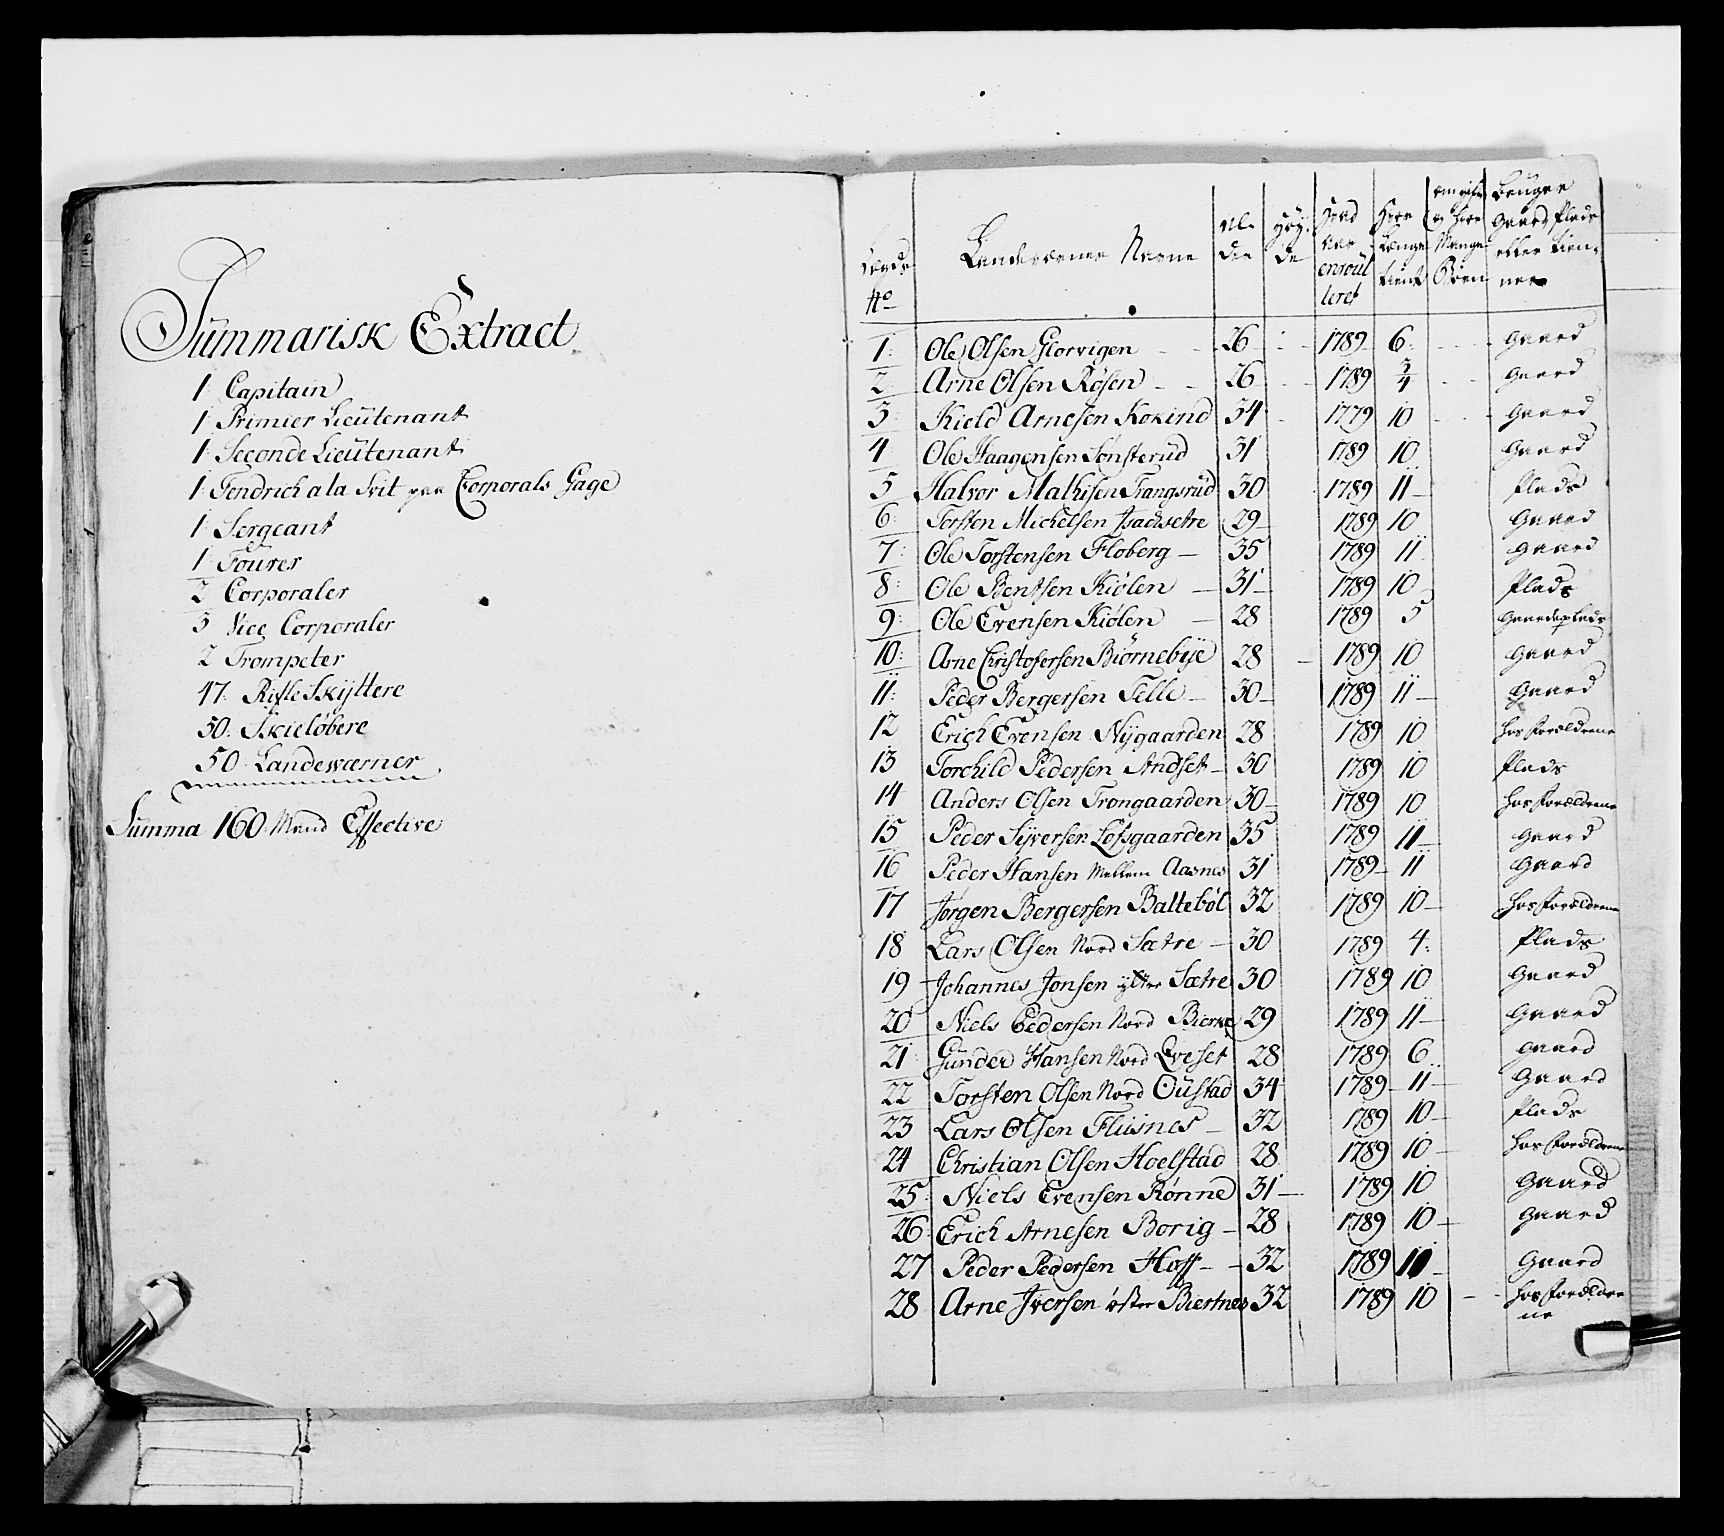 Summarisk Extract
1 Capitain
1 Primier Lieutenant
1 Seconde Lieutenant
1 Fendrich a la Svit paa Corporals Gage
1 Sergeant
1 Fourer
2 Corporaler
3 Vice Corporaler
2 Trompeter
47: Rifle Skÿttere
50: Skieløbere
50 Landewærner
Summa 160 Mand Effective
Lægds No Landeværnes Navne Al- der Høy- de Hvad Aar enroul leret Hvor Længe tient om gift og hvor Mange Børn Bruger Gaard, Plads eller tien- ner
1: Ole Olsen Glorvigen 26 1789 6 Gaard
2 Arne Olsen Røsen 26 1789 3/4 Gaard
3: Kield Arnesen Kokind 34 1779 10 Gaard
4 Ole Haagensen Sønsterud 31 1789 10 Gaard
5 Halvor Mathisen Trangsrud 30 1789 11 Plads
6: Torsten Michelsen Isachsetre 29 1789 10 Gaard
7: Ole Torstensen Floberg 35 1789 11 Gaard
8: Ole Bentsen Kiølen 31 1789 10 Plads
9: Ole Evensen Kiølen 28 1789 5 Gaardeplads
10: Arne Christofersen Biørnebÿe 28 1789 10 Gaard
11: Peder Bergersen Telle 30 1789 11 Gaard
12 Erich Evensen Nÿgaarden 28 1789 10 hos Forældrene
13 Torchild Pedersen Andset 30 1789 10 Plads
14 Anders Olsen Trongaarden 30 1789 10 hos Forældrene
15 Peder Sÿversen Løfsgaarden 35 1789 11 Gaard
16 Peder Hansen Mellem Aasnes 31 1789 11 Gaard
17 Jørgen Bergersen Baltebøl 32 1789 10 hos Forældrene
18 Lars Olsen Nord Sætre 30 1789 4: Plads
19 Johannes Jonsen ÿttre Sætre 30 1789 10 Gaard
20 Niels Pedersen Nord Bierke 29 1789 11 Gaard
21: Gunder Hansen Nord Qveset 28 1789 6 Gaard
22 Torsten Olsen Nord Oustad 34 1789 11 Gaard
23 Lars Olsen Flisnes 32 1789 10 Plads
24 Christian Olsen Hoelstad 28 1789 10 hos Forældrene
25: Niels Evensen Rønne 31 1789 10 Gaard
26: Erich Arnesen Borig 28 1789 10 Gaard
27 Peder Pedersen Hoff 32 1789 11 Gaard
28 Arne Iversen øster Biertnes 32 1789 10 hos Forældre
ne